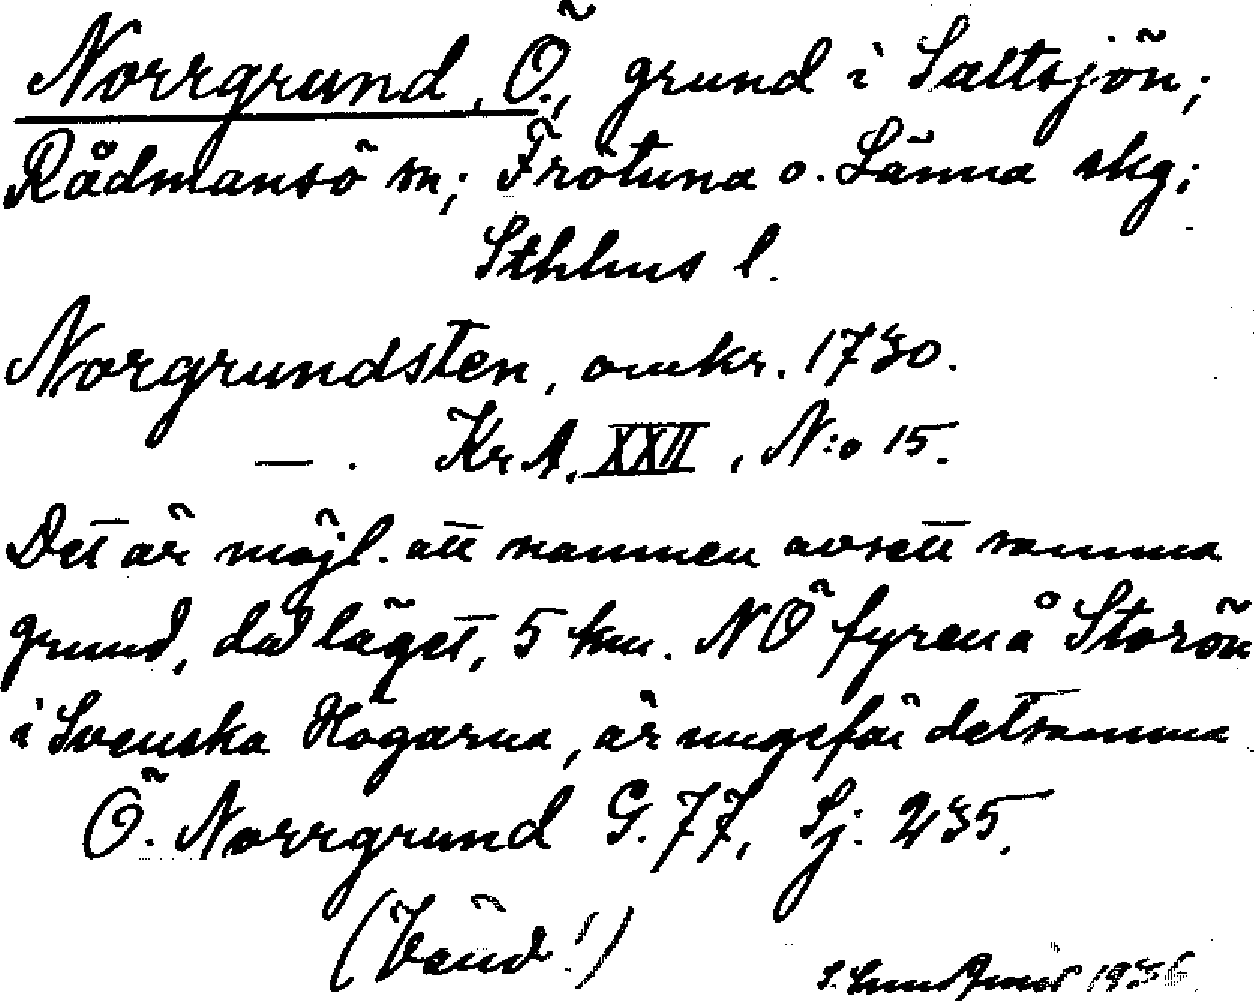 Norrgrund, Ö., grund i Saltsjön;
Rådmansö sn; Frötuna o. Länna skg;
Sthlms l.
Norgrundsten, omkr. 1730.
— . Kr A, XXII, N:o 15.
Det är möjl. att namnen avsett samma
grund, då läget, 5 km. NÖ fyren å Storön
i Svenska Högarna, är ungefär detsamma
Ö. Norrgrund G. 77, Sj. 235.
(Vänd!)
1936